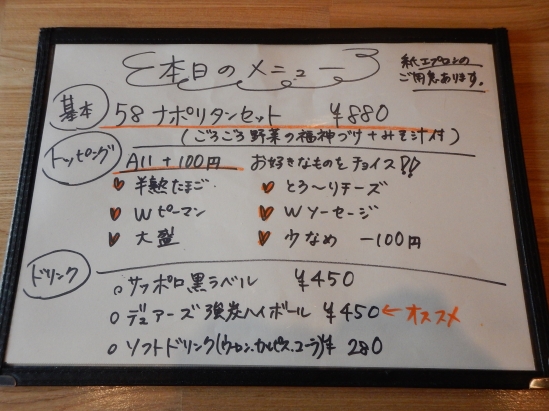 本日のメニュー
紙エプロンの
ご用意あります。
基本 58ナポリタンセット ¥880
(ごろごろ野菜の福神づけ+みそ汁付)
トッピング All +100円 お好きなものをチョイス!!
半熟たまご とろ〜りチーズ
Wピーマン Wソーセージ
大盛 少なめ −100円
ドリンク
サッポロ黒ラベル ¥450
デュアーズ強炭ハイボール ¥450 ← オススメ
ソフトドリンク(ウーロン.カルピス.コーラ) ¥280